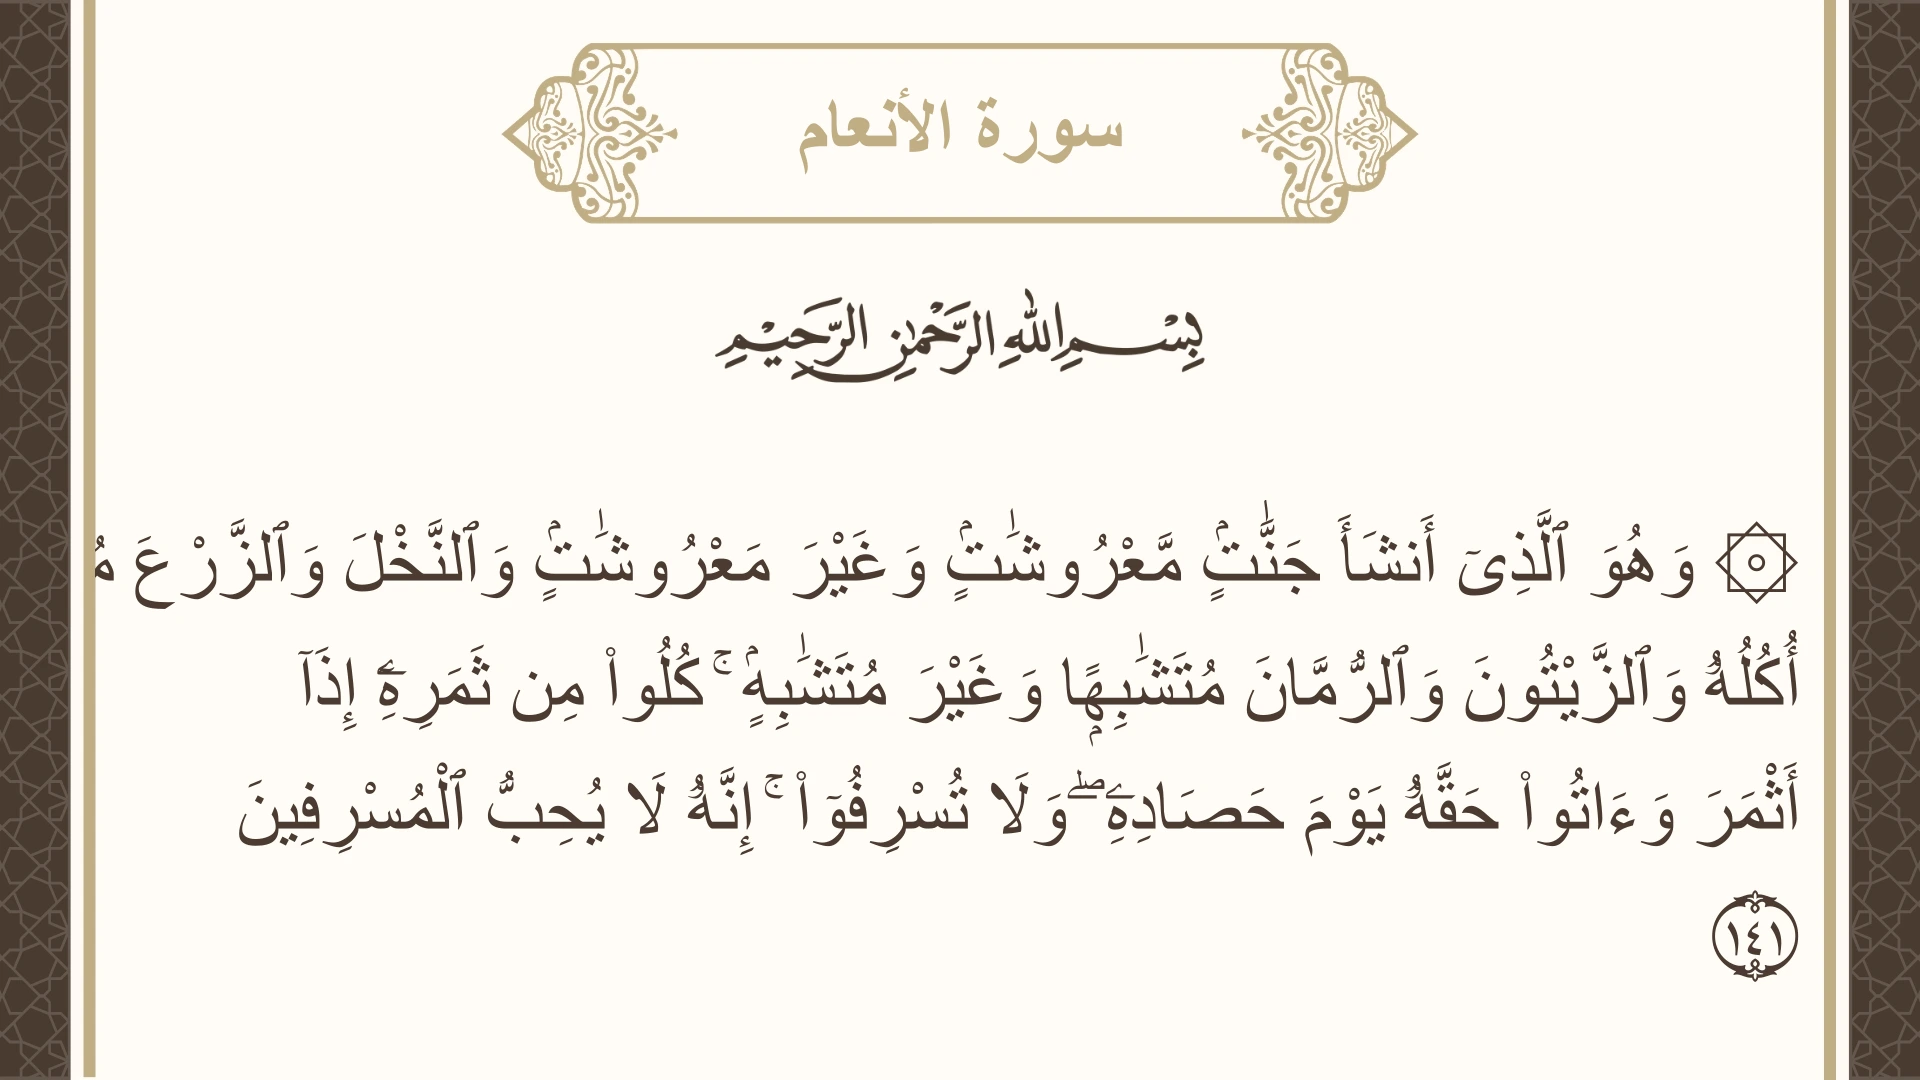 سورة الأنعام
بِسْمِ اللهِ الرَّحْمٰنِ الرَّحِيْمِ
۞ وَهُوَ ٱلَّذِىٓ أَنشَأَ جَنَّـٰتٍۢ مَّعْرُوشَـٰتٍۢ وَغَيْرَ مَعْرُوشَـٰتٍۢ وَٱلنَّخْلَ وَٱلزَّرْعَ
أُكُلُهُۥ وَٱلزَّيْتُونَ وَٱلرُّمَّانَ مُتَشَـٰبِهًۭا وَغَيْرَ مُتَشَـٰبِهٍۢ ۚ كُلُوا۟ مِن ثَمَرِهِۦٓ إِذَآ
أَثْمَرَ وَءَاتُوا۟ حَقَّهُۥ يَوْمَ حَصَادِهِۦ ۖ وَلَا تُسْرِفُوٓا۟ ۚ إِنَّهُۥ لَا يُحِبُّ ٱلْمُسْرِفِينَ
١٤١